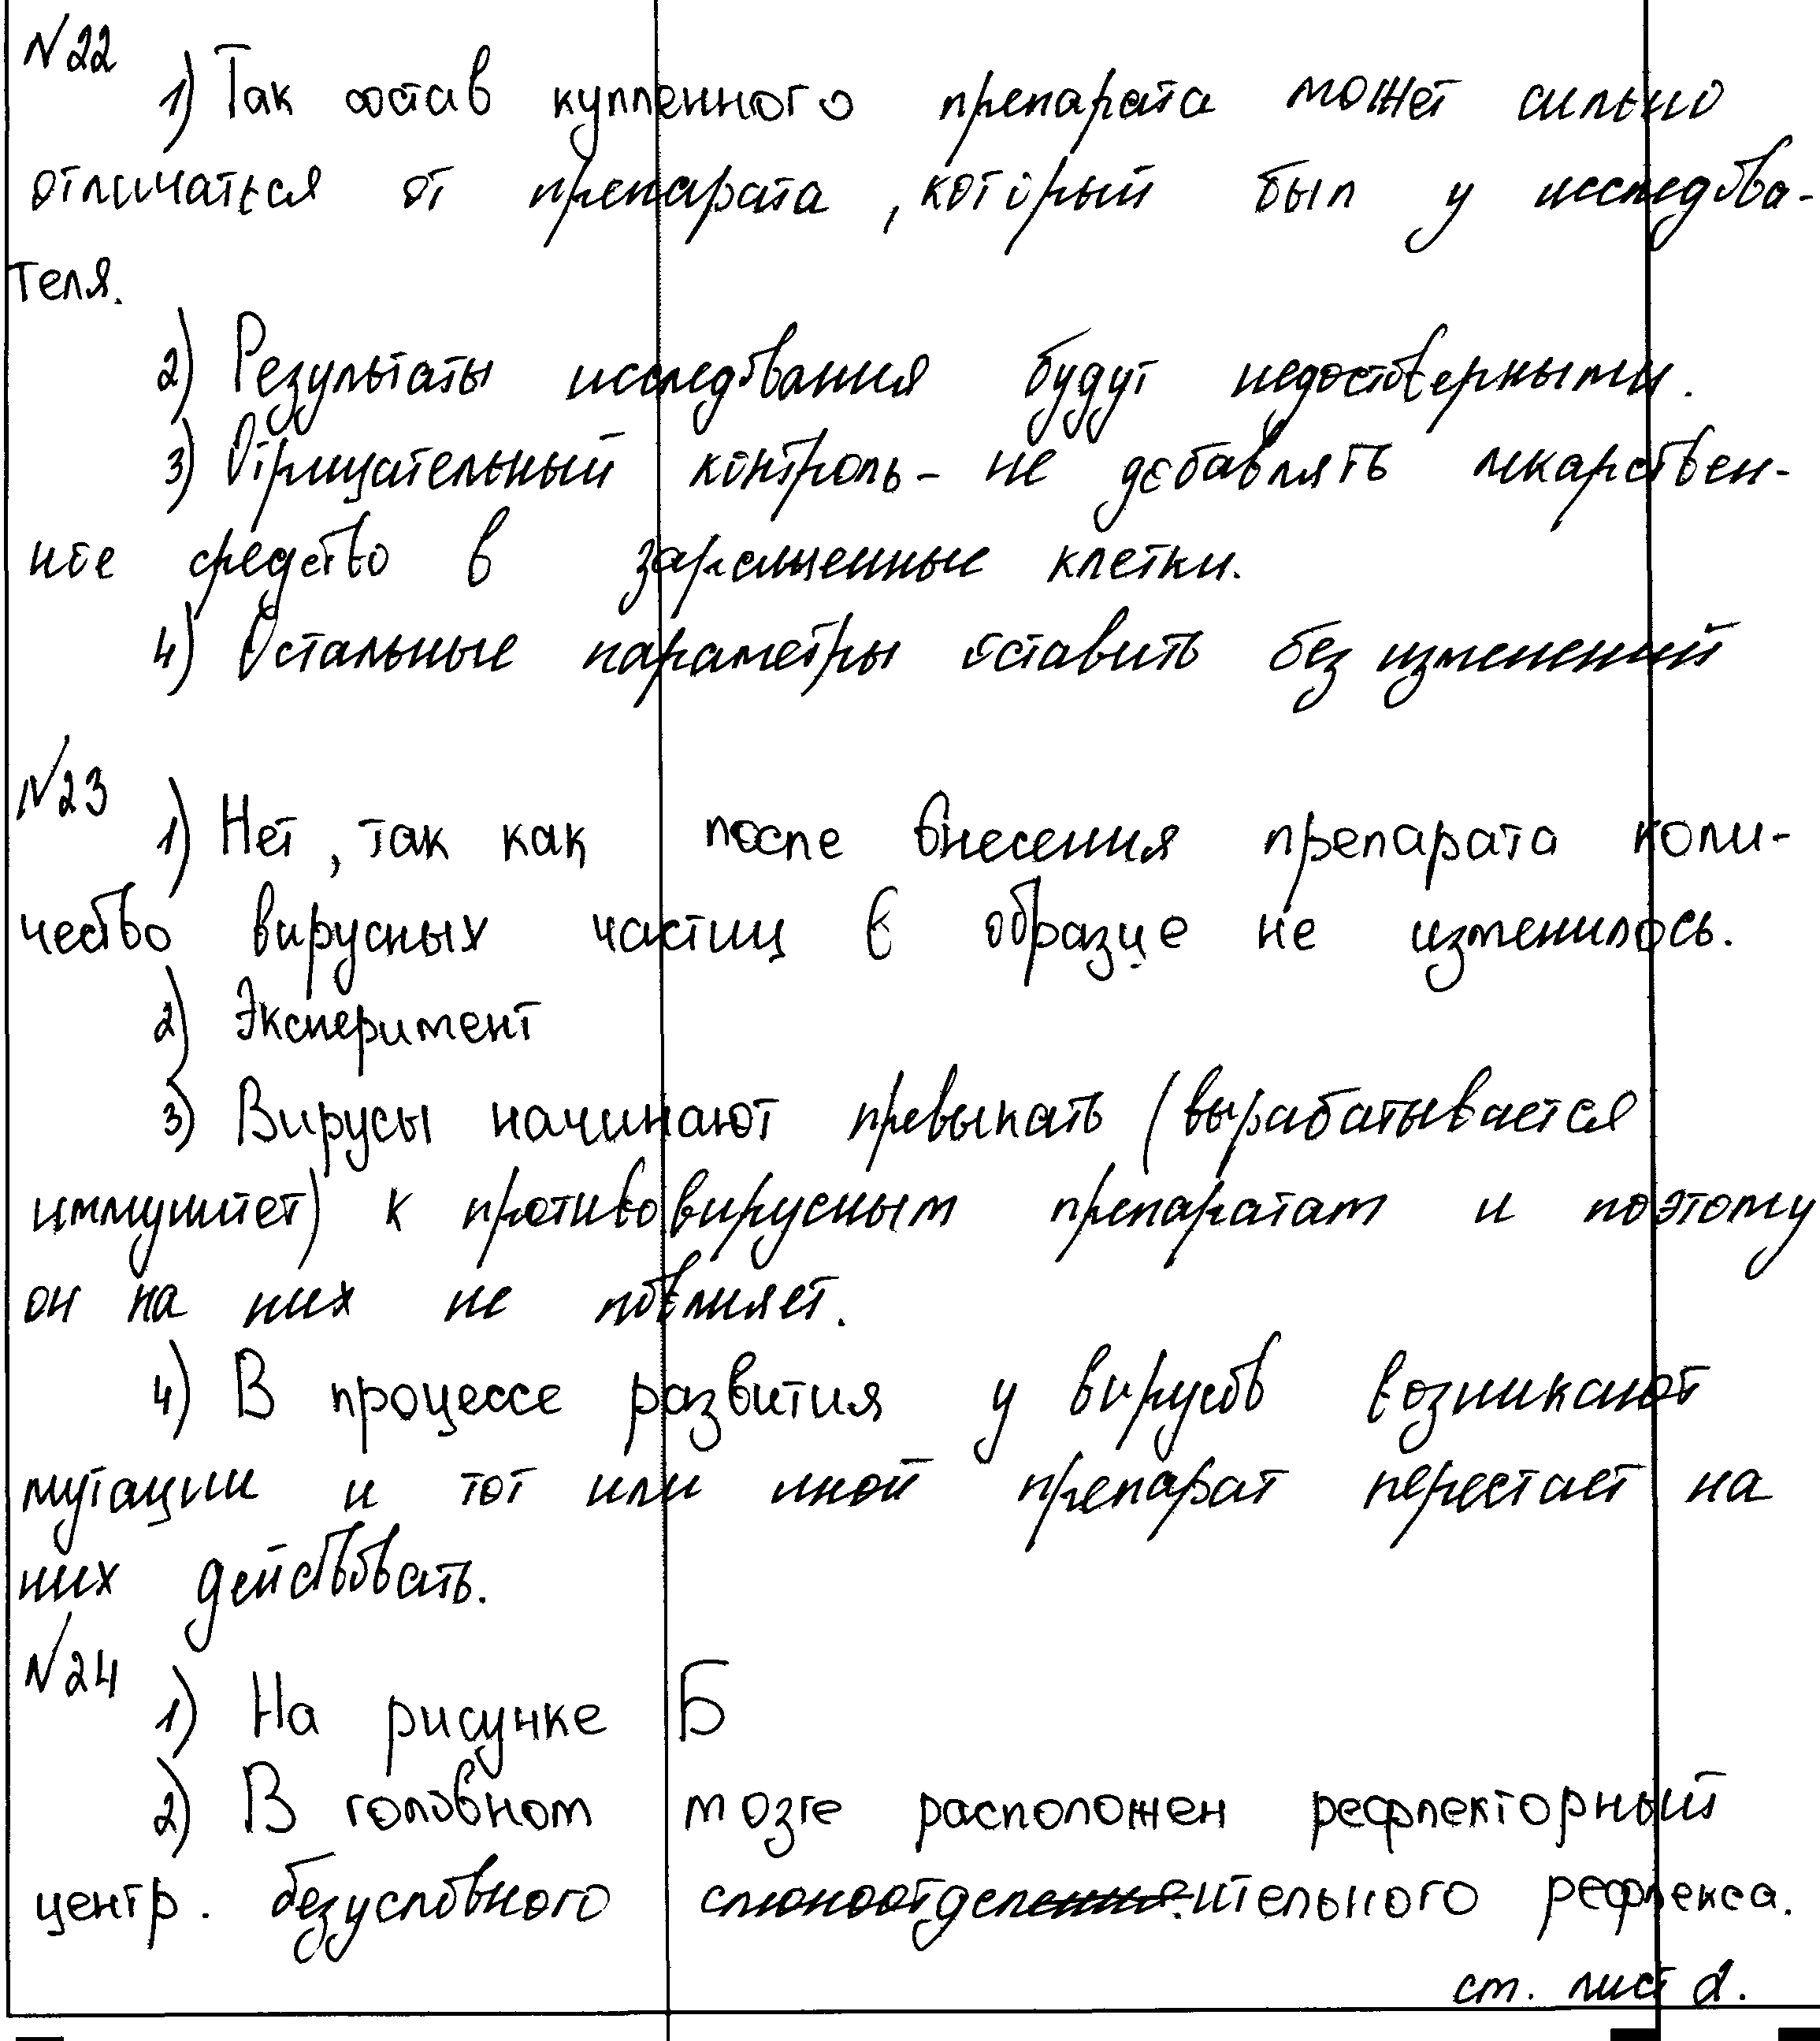 №22
1) Так состав купленного препарата может сильно
отличаться от препарата, который был у исследова-
теля.
2) Результаты исследования будут недостоверными.
3) Отрицательный контроль - не добавлять лекарствен-
ное средство в зараженные клетки.
4) Остальные параметры оставить без изменений
№23
1) Нет, так как после внесения препарата коли-
чество вирусных частиц в образце не изменилось.
2) Эксперимент
3) Вирусы начинают превыкать (вырабатывается
иммунитет) к противовирусным препаратам и поэтому
он на них не повлияет.
4) В процессе развития у вирусов возникают
мутации и тот или иной препарат перестает на
них действовать.
№24
1) На рисунке Б
2) В головном мозге расположен рефлекторный
центр. безусловного слюноотделительного рефлекса.
см. лист 2.